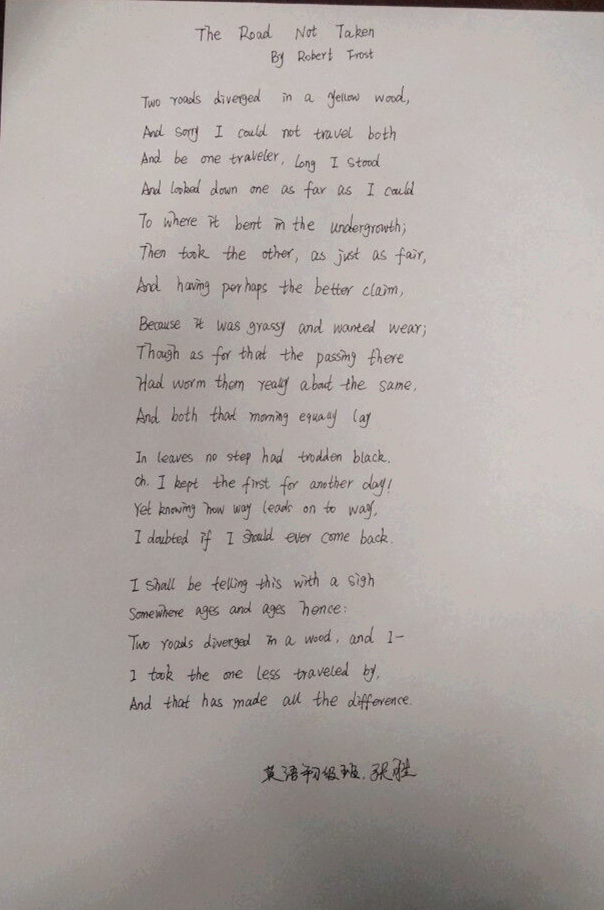 The Road Not Taken
By Robert Frost
Two roads diverged in a yellow wood,
And sorry I could not travel both
And be one traveler, long I stood
And looked down one as far as I could
To where it bent in the undergrowth;
Then took the other, as just as fair,
And having perhaps the better claim,
Because it was grassy and wanted wear;
Though as for that the passing there
Had worm them really about the same,
And both that morning equally lay
In leaves no step had trodden black.
Oh, I kept the first for another day!
Yet knowing how way leads on to way,
I doubted if I should ever come back.
I shall be telling this with a sigh
Somewhere ages and ages hence:
Two roads diverged in a wood, and I-
I took the one less traveled by,
And that has made all the difference.
英语初级班.张胜